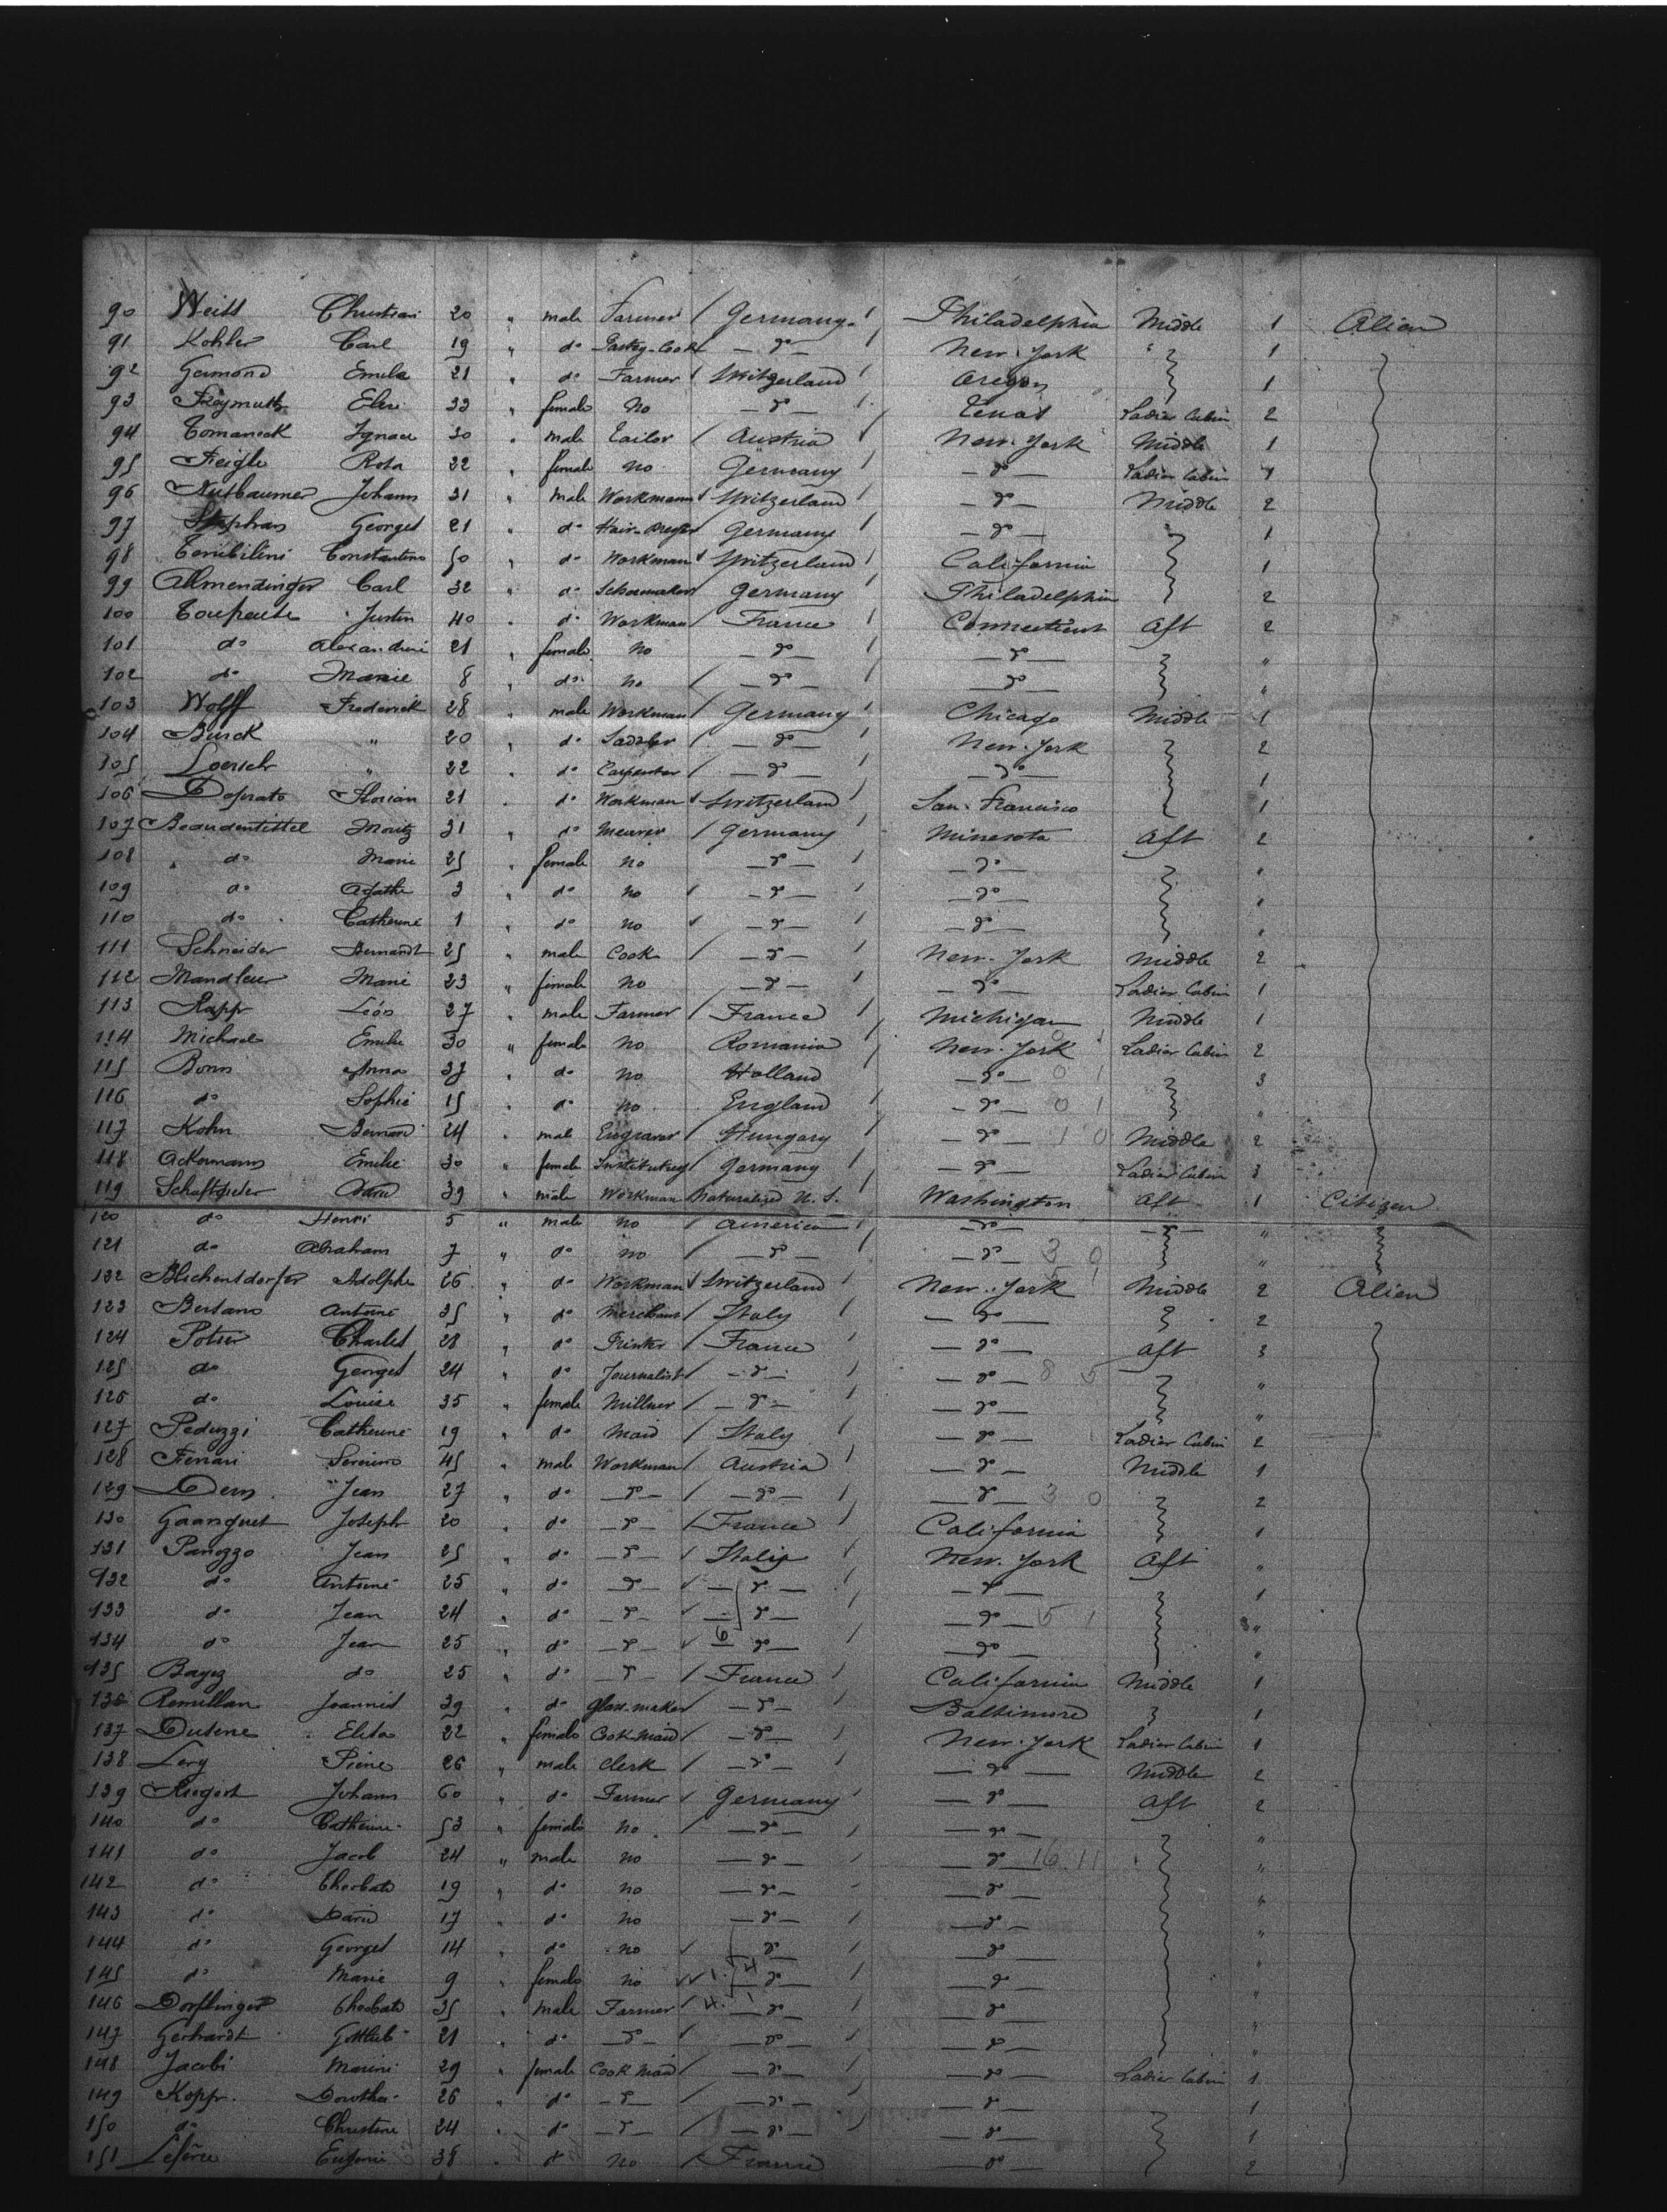 90 Weiss Christian 20 " male Farmer / Germany / Philadelphia Middle 1 Alien
91 Kohler Carl 19 " do Pastry-Cook — do — / New-York " 1
92 Germond Emile 21 " do Farmer / Switzerland / Oregon 1
93 Freymuth Elise 33 " female No — do — / Texas Ladies Cabin 2
94 Tomaneck Ignace 30 " male Tailor / Austria / New-York Middle 1
95 Feigle Rosa 22 " female No Germany / — do — Ladies Cabin 1
96 Nusbaumer Johann 31 " male Workmann / Switzerland / — do — Middle 2
97 Stephan Georges 21 " do Germany / — do — 1
98 Constantino 50 " do Workman / Switzerland / California 1
99 Allmendinger Carl 32 " do Schoemaker Germany / Philadelphia 2
100 Justin 40 " do Workman / France / Connecticut Aft 2
101 do Alexandrine 21 " female No — do — / — do — "
102 do Marie 8 " do No / — do — / — do — "
103 Wolff Frederick 28 " male Workman / Germany / Chicago Middle 1
104 Burck " 20 " do Saddler / — do — / New-York 2
105 Loersch " 22 " do Carpenter / — do — / — do — 1
106 Florian 21 " do Workman / Switzerland / San-Francisco 1
107 Moritz 31 " do / Germany / Minesota Aft 2
108 do Marie 25 " female No — do — / — do — "
109 do Agathe 3 " do No / — do — / — do — "
110 do Catherine 1 " do No / — do — / — do — "
111 Schneider Bernardt 25 " male Cook / — do — / New-York Middle 2
112 Marie 23 " female No — do — / — do — Ladies Cabin 1
113 Rapp Léon 27 " male Farmer / France / Michigan Middle 1
114 Michael Emilie 30 " female No Romania / New-York Ladies Cabin 2
115 Bonn Anna 37 " do No Holland — do — 0 1 3
116 do Sophie 15 " do No England / — do — 0 1 "
117 Kohn Bernard 24 " male Engraver / Hungary / — do — 1 0 Middle 2
118 Ackermann Emilie 30 " female Germany / — do — Ladies Cabin 3
119 39 " male Workman Naturalized U. S. Washington Aft 1 Citizen
120 do Henri 5 " male No / America / — do — — do — "
121 do Abraham 7 " do No / — do — — do — 3 0 "
122 Adolphe 26 " do Workman / Switzerland / New-York Middle 2 Alien
123 Antoine 35 " do Merchant / Italy / — do — 2
124 Potier Charles 28 " do Printer / France / — do — Aft 3
125 do Georges 24 " do Journalist — do — / — do — 8 5 "
126 do Louise 35 " female Milliner / — do — / — do — "
127 Peduzzi Catherine 19 " do Maid / Italy / — do — Ladies Cabin 2
128 Ferrari 45 " male Workman / Austria / — do — Middle 1
129 Jean 27 " do — do — / — do — / — do — 3 0 2
130 Joseph 20 " do — do — / France / California 1
131 Panozzo Jean 25 " do — do — / Italy / New-York Aft "
132 do Antoine 25 " do — do — / — do — / — do — 1
133 do Jean 24 " do — do — / — do — / — do — 5 1 "
134 do Jean 25 " do — do — / 6 — do — / — do — "
135 do 25 " do — do — / France / California Middle 1
136 39 " do Glass-maker — do — / Baltimore 1
137 Elisa 22 " female Cook-Maid / — do — / New-York Ladies Cabin 1
138 Pierre 26 " male Clerk / — do — / — do — Middle 2
139 Johann 60 " do Farmer / Germany / — do — Aft 2
140 do Catherine 53 " female No / — do — / — do — "
141 do Jacob 24 " male No — do — / — do — 16 11 "
142 do 19 " do No — do — / — do — "
143 do 17 " do No — do — / — do — "
144 do Georges 14 " do No / — do — / — do — "
145 do Marie 9 " female No 1. 4 — do — / — do — "
146 Dorflinger 35 " male Farmer / 4. 1 — do — / — do — "
147 Gerhardt Gottlieb 21 " do — do — / — do — / — do — "
148 Jacobi 29 " female Cook Maid / — do — / — do — Ladies Cabin 1
149 Kopp 26 " do — do — / — do — / — do — 1
150 do Christine 24 " do — do — / — do — / — do — 1
151 38 " do No / France — do — 2